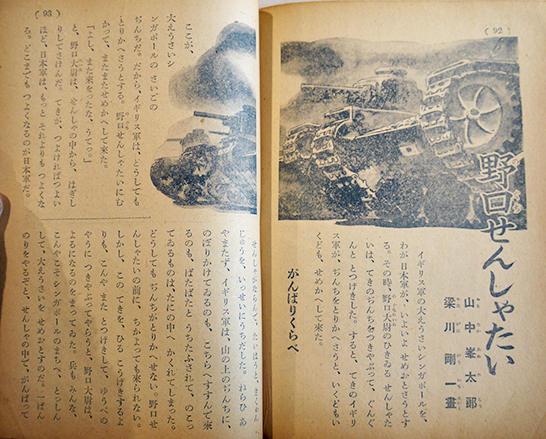 (92)
野口せんしゃたい
山中峯太郎
梁川剛一畫
イギリス軍の大えうさいシンガポールを、
わが日本軍が、いよいよ せめおとさうとす
る。その時、野口大尉のひきゐる せんしゃた
いは、てきのぢんちをつきやぶって、ぐんぐ
んと とつげきした。すると、てきのイギリ
ス軍が、ぢんちをとりかへさうと、いくどもい
くども、せめかへして来た。
がんばりくらべ
(93)
ここが、
大えうさいシ
ンガポールの さいごの
ぢんちだ。だから、イギリス軍は、どうしても
とりかへさうとする。野口せんしゃたいにむ
かって、またまたせめかへして来た。
「よし、また来をったな、うてっ。」
と、野口大尉は、せんしゃの中から、はぎし
りしてさけんだ。てきが、つよければつよい
ほど、日本軍は、もっと それよりも つよくな
る。どこまでも つよくなるのが日本軍だ。
せんしゃがならんで、たいはうと、きくゎん
じゅうを、いっせいにうちだした。ねらひ あ
やまたず、イギリス軍は、山の上のぢんちに、
のぼりかけてゐるのも、こちらへすすんで來
るのも、ばたばたと うちたふされて、のこっ
てゐるものは、たにの中へ かくれてしまった。
どうしても ぢんちがとりかへせない。野口せ
んしゃたいの前に、ちかよっても來られない。
しかし、この てきを、ひる こうげきするよ
りも、こんや また とつげきして、ゆうべの
やうに つきやぶってやらうと、野口大尉は、
よるになるのをまってゐた。兵も みんな、
こんやこそ シンガポールのまちへ、とっしん
して、大えうさいを せめおとすのだ。一ばん
のりをやるぞと、せんしゃの中で、がんばって